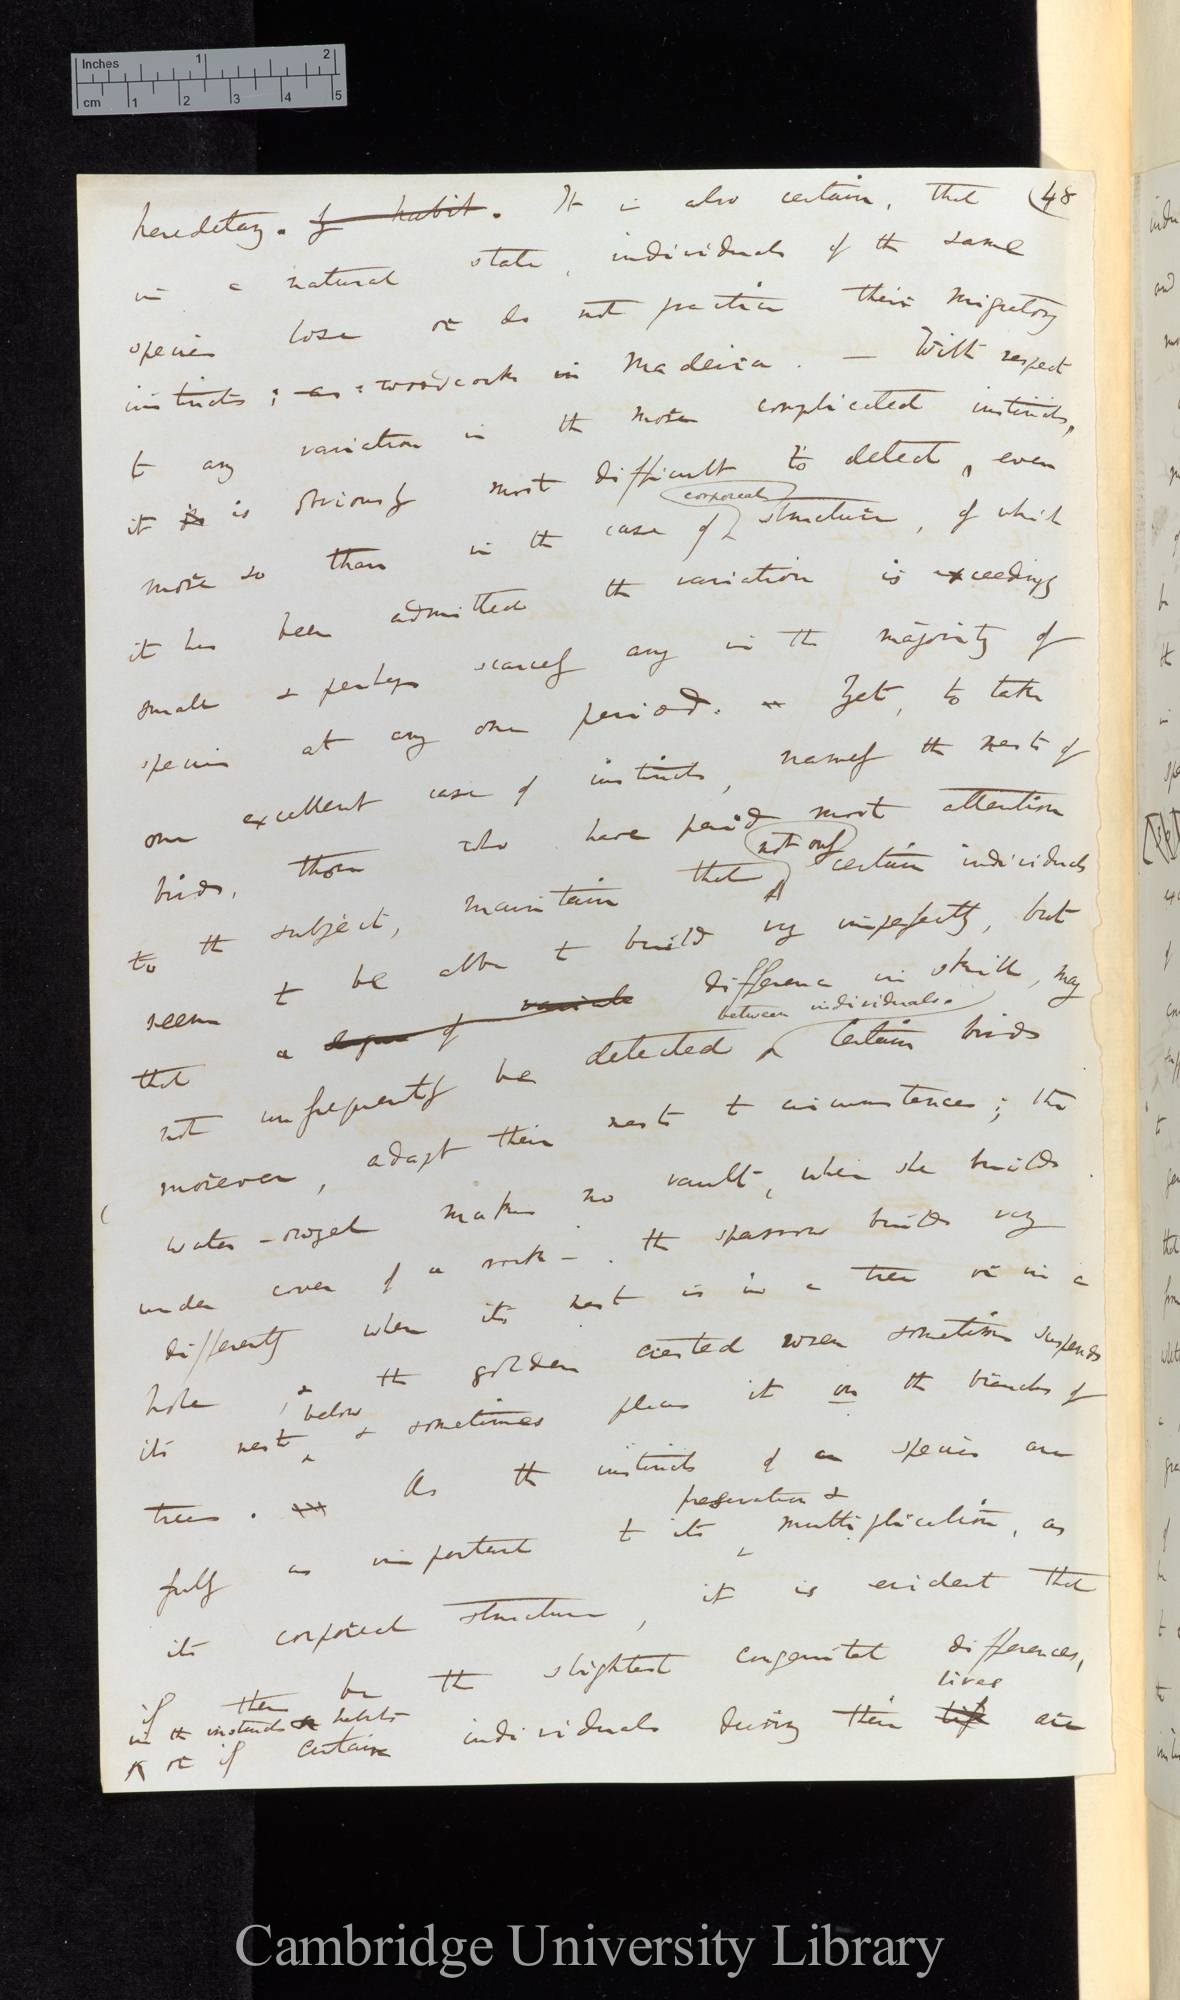 Inches 1 2
cm 1 2 3 4 5
48
hereditary. of habit. It is also certain, that
in a natural state, individuals of the same
species lose or do not practice their migratory
instincts; as woodcocks in Madeira. — With respect
to any variation in the more complicated instincts,
it is obviously most difficult to detect, even
corporeal
more so than in the case of structure, of which
it has been admitted the variation is exceedingly
small & perhaps scarcely any in the majority of
species at any one period. Yet, to take
one excellent case of instincts, namely the nests of
birds, those who have paid most attention
not only
to the subject, maintain that certain individuals
seem to be able to build very imperfectly, but
that a degree of variable difference in skill, may
between individuals.
not unfrequently be detected Certain birds
moreover, adapt their nests to circumstances; the
water-ouzel makes no vault, when she builds
under cover of a rock – . the sparrow builds very
differently when its nest is in a tree or in a
hole, & the golden crested wren sometimes suspends
below
its nest & sometimes places it on the branches of
trees. As the instincts of a species are
preservation &
fully as important to its multiplication, as
its corporeal structure, it is evident that
if there be the slightest congenital differences,
in the instincts & habits
lives
or if certain individuals during their life are
Cambridge University Library